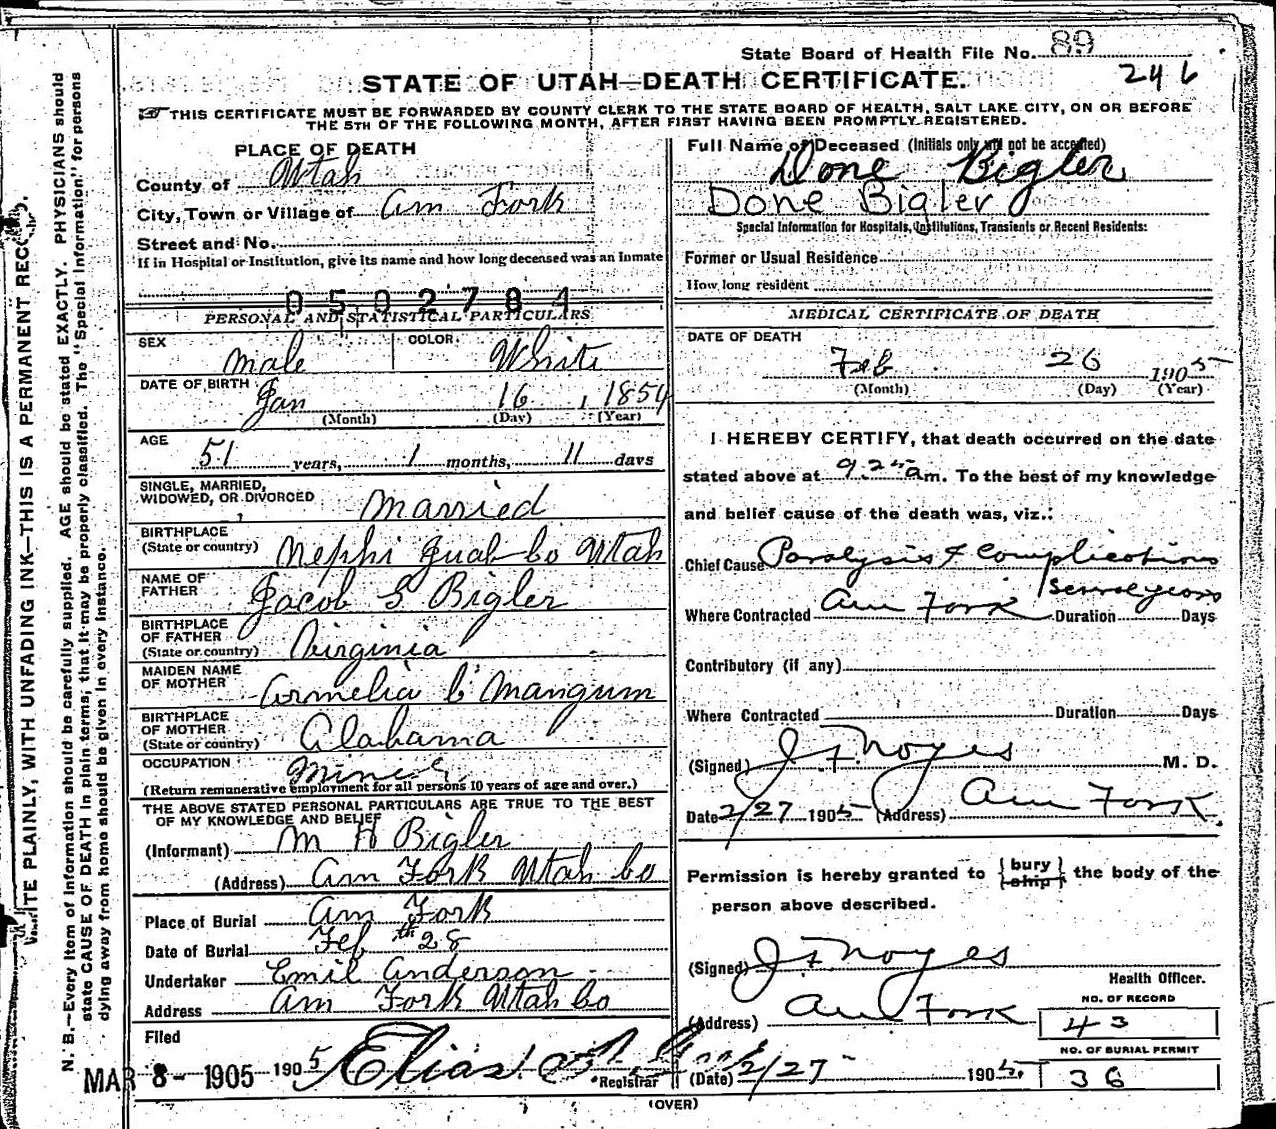 State Board of Health File No. 89
246
STATE OF UTAH—DEATH CERTIFICATE.
THIS CERTIFICATE MUST BE FORWARDED BY COUNTY CLERK TO THE STATE BOARD OF HEALTH, SALT LAKE CITY, ON OR BEFORE
THE 5TH OF THE FOLLOWING MONTH, AFTER FIRST HAVING BEEN PROMPTLY REGISTERED.
PLACE OF DEATH
County of Utah
City, Town or Village of Am Fork
Street and No.
If in Hospital or Institution, give its name and how long deceased was an Inmate
0502784
PERSONAL AND STATISTICAL PARTICULARS
SEX Male COLOR White
DATE OF BIRTH Jan 16, 1854
(Month) (Day) (Year)
AGE 51 years, 1 months, 11 days
SINGLE, MARRIED,
WIDOWED, OR DIVORCED Married
BIRTHPLACE
(State or country) Nephi Juab Co Utah
NAME OF
FATHER Jacob G Bigler
BIRTHPLACE
OF FATHER
(State or country) Virginia
MAIDEN NAME
OF MOTHER Armelia C Mangum
BIRTHPLACE
OF MOTHER
(State or country) Alabama
OCCUPATION Miner
(Return remunerative employment for all persons 10 years of age and over.)
THE ABOVE STATED PERSONAL PARTICULARS ARE TRUE TO THE BEST
OF MY KNOWLEDGE AND BELIEF
(Informant) M A Bigler
(Address) Am Fork Utah Co
Place of Burial Am Fork
Date of Burial Feb 28th
Undertaker Emil Anderson
Address Am Fork Utah Co
Filed
MAR 8 - 1905 1905 Elias
Registrar
Full Name of Deceased (Initials only will not be accepted)
Done Bigler
Done Bigler
Special Information for Hospitals, Institutions, Transients or Recent Residents:
Former or Usual Residence
How long resident
MEDICAL CERTIFICATE OF DEATH
DATE OF DEATH
Feb 26 1905
(Month) (Day) (Year)
I HEREBY CERTIFY, that death occurred on the date
stated above at 9.25 am. To the best of my knowledge
and belief cause of the death was, viz.:
Chief Cause Paralysis & Complications
Where Contracted Am Fork Duration several years Days
Contributory (if any)
Where Contracted Duration Days
(Signed) J. F. Noyes M. D.
Date 2/27 1905 (Address) Am Fork
Permission is hereby granted to {bury ship} the body of the
person above described.
(Signed) J F Noyes
Health Officer.
(Address) Am Fork
NO. OF RECORD
43
NO. OF BURIAL PERMIT
(Date) 2/27 1905. 36
(OVER)
WRITE PLAINLY, WITH UNFADING INK—THIS IS A PERMANENT RECORD.
N. B.—Every item of information should be carefully supplied. AGE should be stated EXACTLY. PHYSICIANS should
state CAUSE OF DEATH in plain terms, that it may be properly classified. The "Special Information" for persons
dying away from home should be given in every instance.